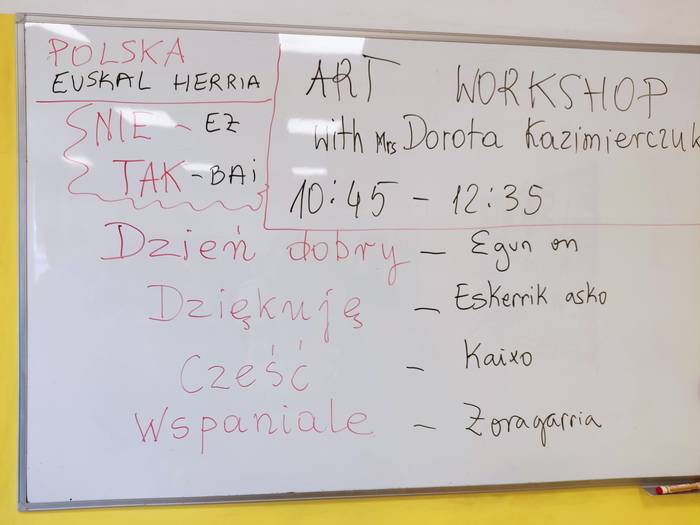 POLSKA
EUSKAL HERRIA
NIE - EZ
TAK - BAi
ART WORKSHOP
with Mrs Dorota Kazimierczuk
10:45 - 12:35
Dzień dobry - Egun on
Dziękuję - Eskerrik asko
Cześć - Kaixo
Wspaniale - Zoragarria